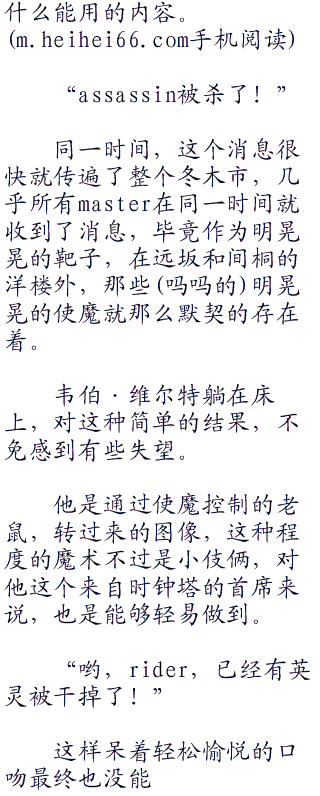 什么能用的内容。
(m.heihei66.com手机阅读)
“assassin被杀了！”
同一时间，这个消息很
快就传遍了整个冬木市，几
乎所有master在同一时间就
收到了消息，毕竟作为明晃
晃的靶子，在远坂和间桐的
洋楼外，那些(吗吗的)明晃
晃的使魔就那么默契的存在
着。
韦伯·维尔特躺在床
上，对这种简单的结果，不
免感到有些失望。
他是通过使魔控制的老
鼠，转过来的图像，这种程
度的魔术不过是小伎俩，对
他这个来自时钟塔的首席来
说，也是能够轻易做到。
“哟，rider，已经有英
灵被干掉了！”
这样呆着轻松愉悦的口
吻最终也没能